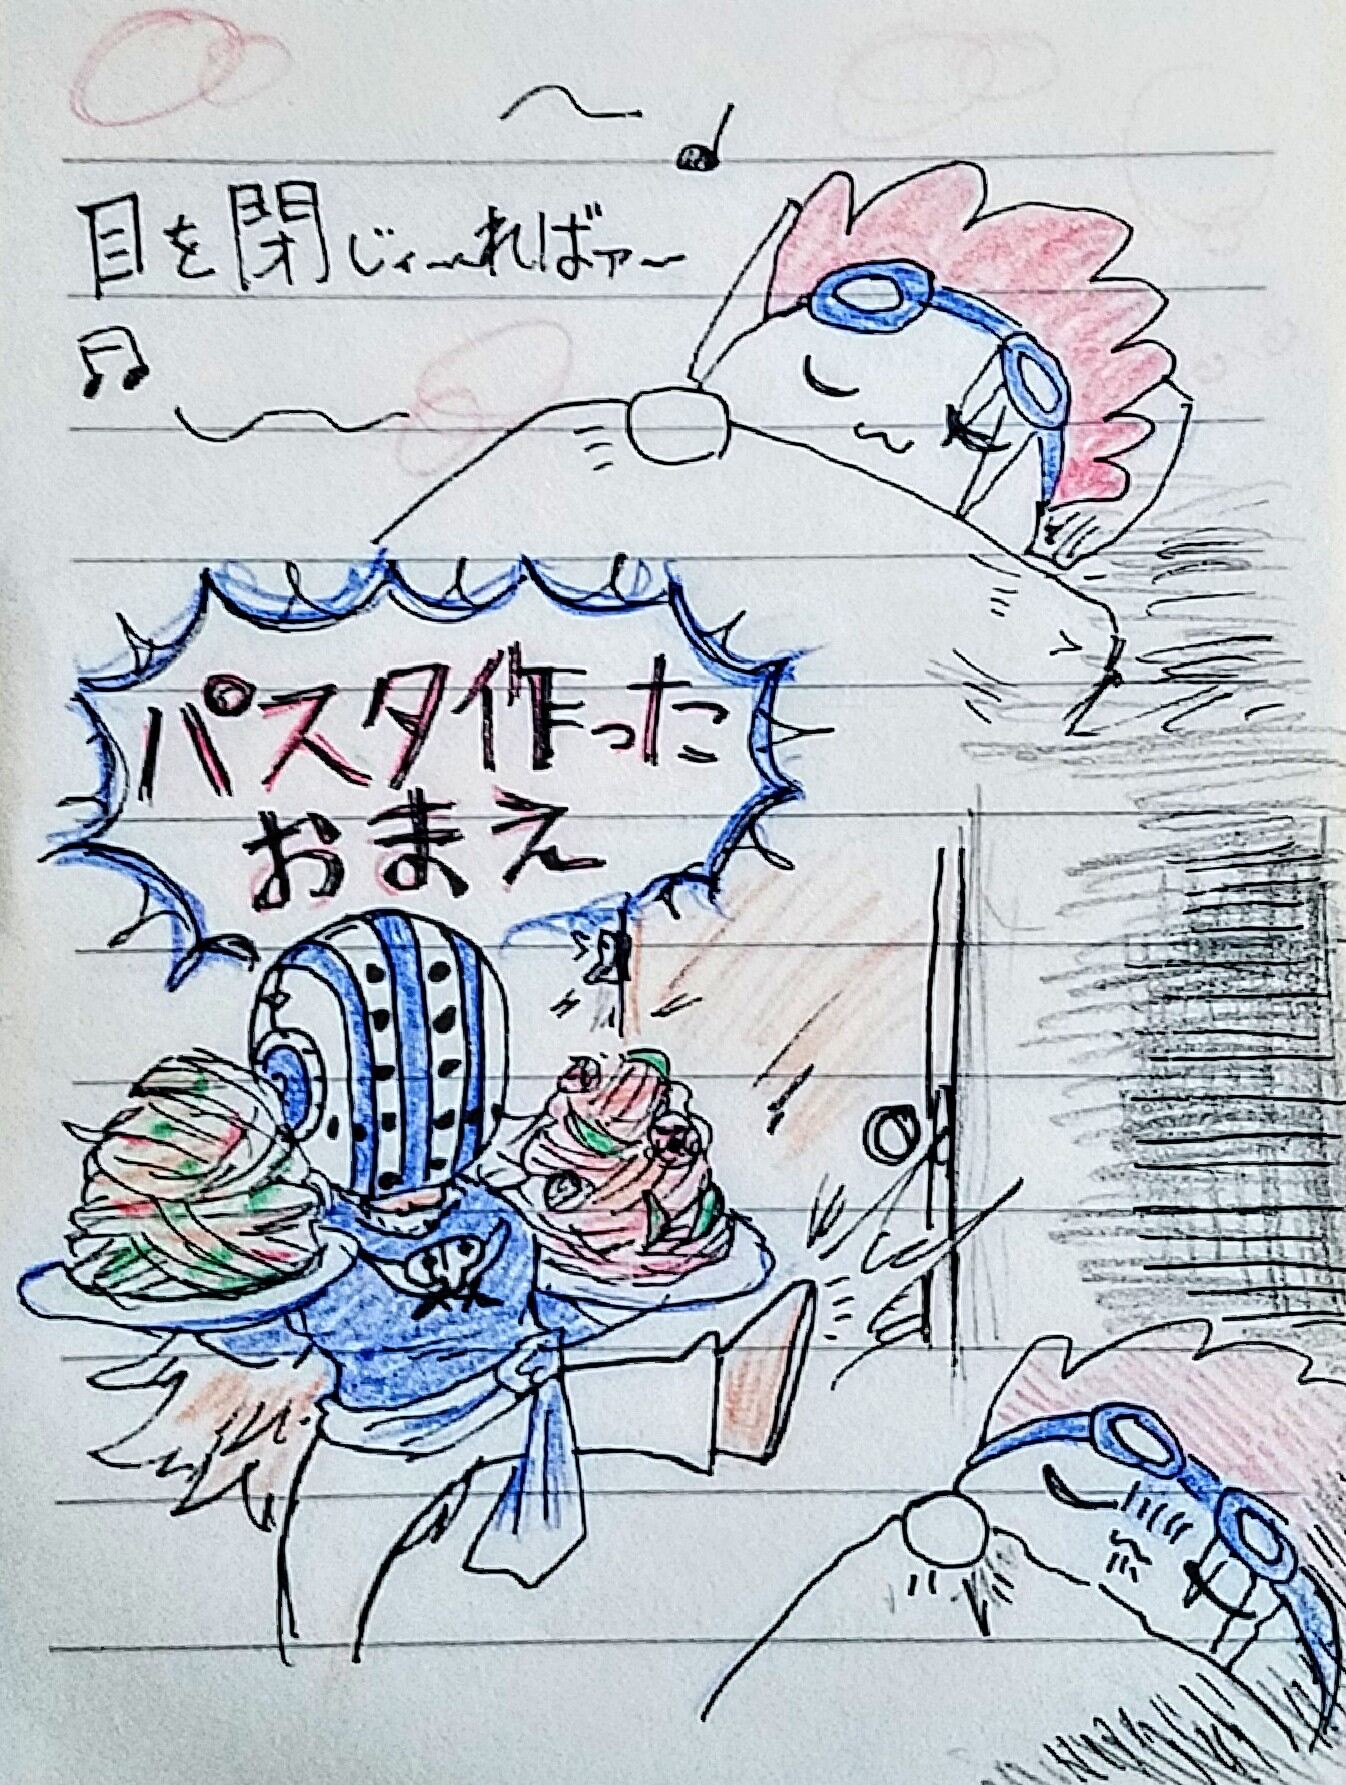 目を閉じィ〜ればァ〜
パスタ作った
おまえ